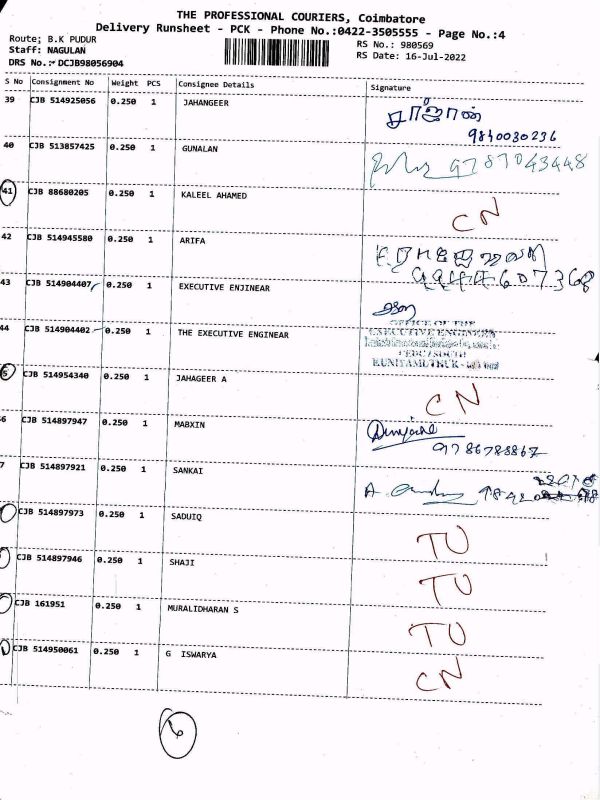 THE PROFESSIONAL COURIERS, Coimbatore
Delivery Runsheet - PCK - Phone No.:0422-3505555 - Page No.:4
Route; B.K PUDUR
RS No.: 980569
Staff: NAGULAN
RS Date: 16-Jul-2022
DRS No.:- DCJB98056904
S No Consignment No Weight PCS Consignee Details Signature
39 CJB 514925056 0.250 1 JAHANGEER
9840030236
40 CJB 513857425 0.250 1 GUNALAN 9787043448
41 CJB 88680205 0.250 1 KALEEL AHAMED CN
42 CJB 514945580 0.250 1 ARIFA
43 CJB 514904407 0.250 1 EXECUTIVE ENJINEAR
44 CJB 514904402 0.250 1 THE EXECUTIVE ENGINEAR
OFFICE OF THE
EXECUTIVE ENGINEER
5 CJB 514954340 0.250 1 JAHAGEER A CN
6 CJB 514897947 0.250 1 MABXIN
9786788867
7 CJB 514897921 0.250 1 SANKAI
CJB 514897973 0.250 1 SADUIQ TU
CJB 514897946 0.250 1 SHAJI TU
CJB 161951 0.250 1 MURALIDHARAN S TU
CJB 514950061 0.250 1 G ISWARYA CN
6